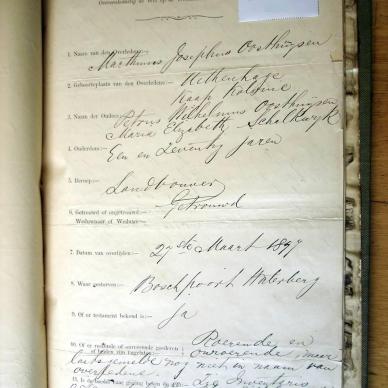 1. Naam van den Overledene:—
Marthinus Josephus Oosthuysen
2. Geboorteplaats van den Overledene:— Uitenhage
Kaap Kolonie
3. Naam der Ouders:— Petrus Wilhelmus Oosthuysen
Maria Elizabeth Schalkwyk
4. Ouderdom:—
Een en Zeventig Jaren
5. Beroep:—
Landbouwer
6. Getrouwd of ongetrouwd:— Getrouwd
Weduwnaar of Weduwe:—
7. Datum van overlijden:—
27ste Maart 1897
8. Waar gestorven:—
Boschpoort Waterberg
9. Of er testament bekend is:—
Ja
10. Of er roerende of onroerende goederen Roerende en
onroerende, maar
laatsgemelde nog niet en naam van
overledene